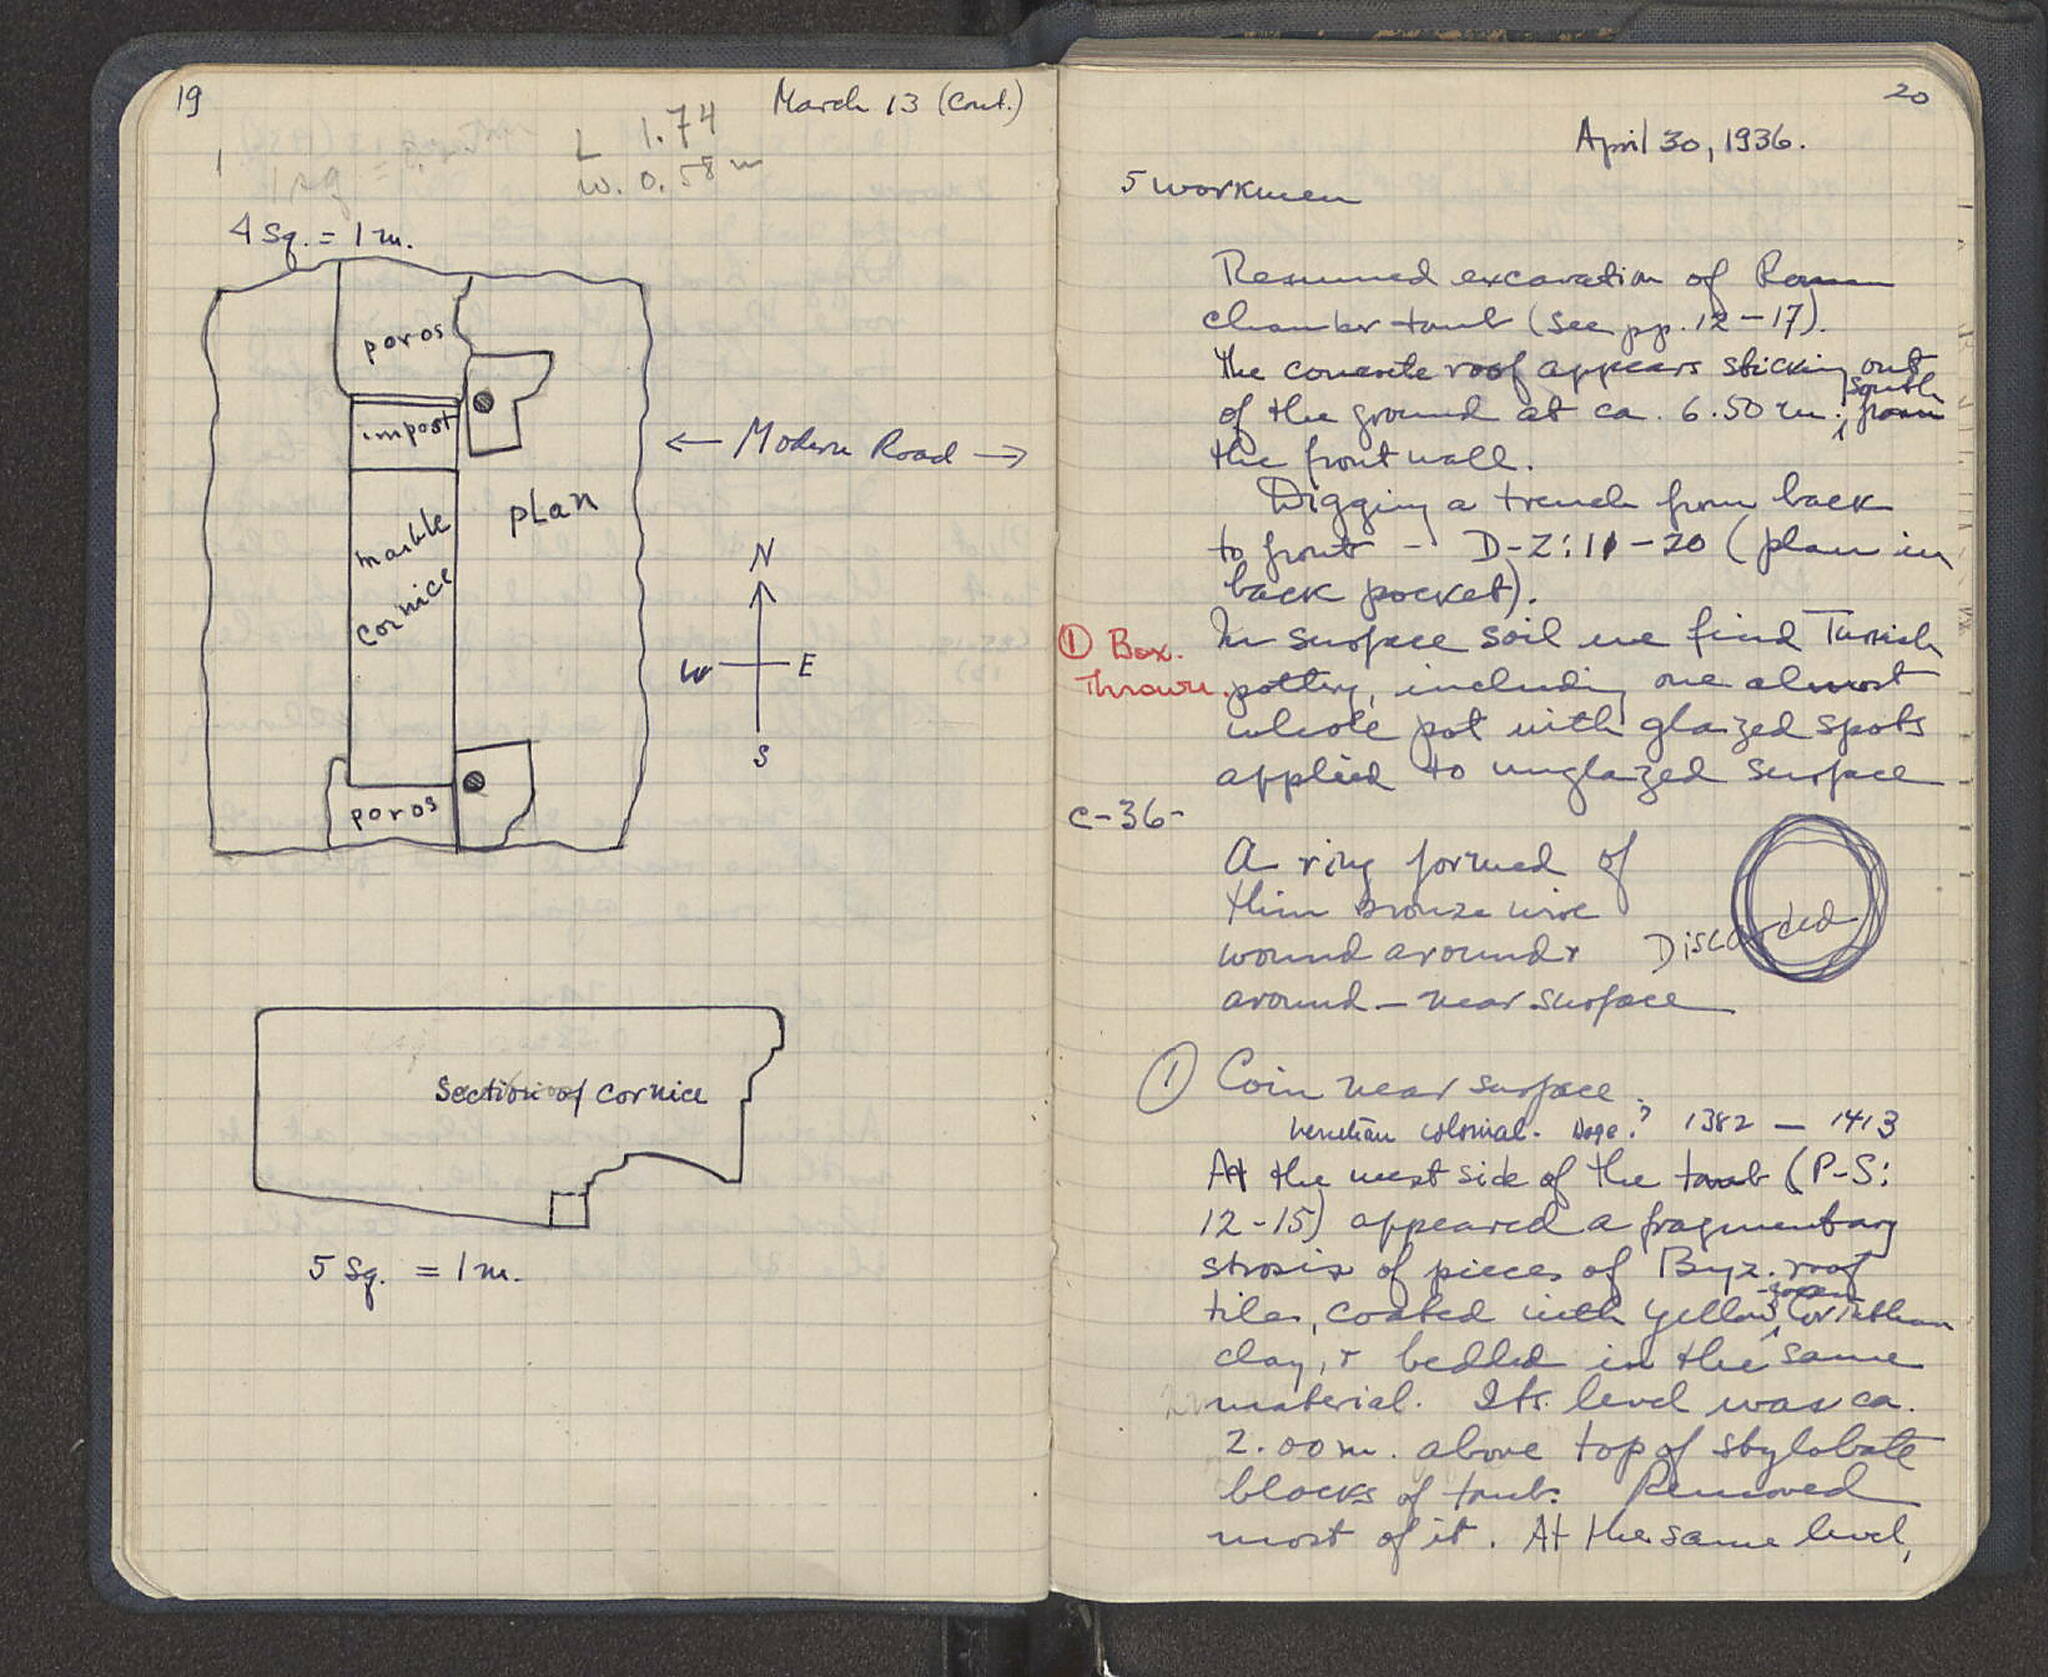 19
March 13 (Cont.)
L 1.74
W. 0.58 m
1 sq =
4 Sq. = 1 m.
poros
impost
← Modern Road →
marble
cornice
plan
N
W E
S
poros
Section of Cornice
5 Sq. = 1 m.
20
April 30, 1936.
5 workmen
Resumed excavation of Roman
chamber tomb (see pp. 12-17).
The concrete roof appears sticking out
of the ground at ca. 6.50 m. south from
the front wall.
Digging a trench from back
to front - D-Z:11-20 (plan in
back pocket).
① Box.
Thrown.
In surface soil we find Turkish
pottery, including one almost
whole pot with glazed spots
applied to unglazed surface
C-36-
A ring formed of
thin bronze wire
wound around +
around - near surface
Discarded
① Coin near surface.
Venetian colonial. Doge? 1382 - 1413
At the west side of the tomb (P-S:
12-15) appeared a fragmentary
strosis of pieces of Byz. roof
tiles, coated with yellow Corinthian
clay, + bedded in the same
material. Its level was ca.
2.00 m. above top of stylobate
blocks of tomb. Removed
most of it. At the same level,